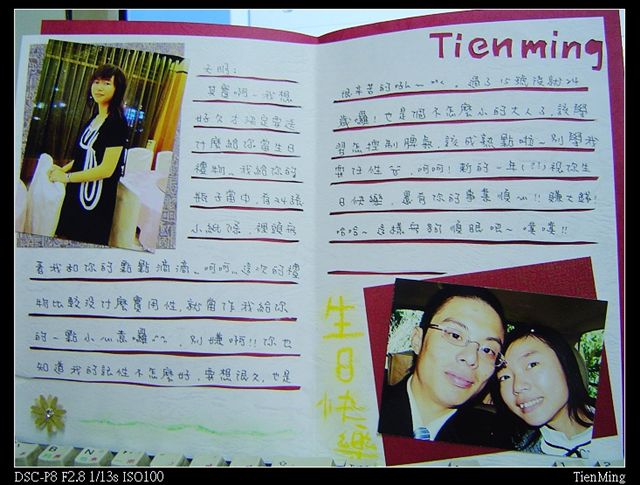 Tienming
天明:
其實啊~我想
好久才決定要送
什麼給你當生日
禮物。我給你的
瓶子當中,有24張
小紙條,裡頭寫
著我和你的點點滴滴~呵呵~這次的禮
物比較沒什麼實用性,就當作我給你
的一點小心意囉^^,別嫌啊!!你也
知道我的記性不怎麼好,要想很久,也是
很辛苦的啦~,過了15號後就24
歲囉!也是個不怎麼小的大人了,該學
習怎控制脾氣,該成熟點啦~別學我
耍任性,呵呵!新的一年(??)祝你生
日快樂,還有你的事業順心!!賺大錢!
哈哈~這樣
順眼吧~噗噗!!
生日快樂
DSC-P8 F2.8 1/13s ISO100
TienMing